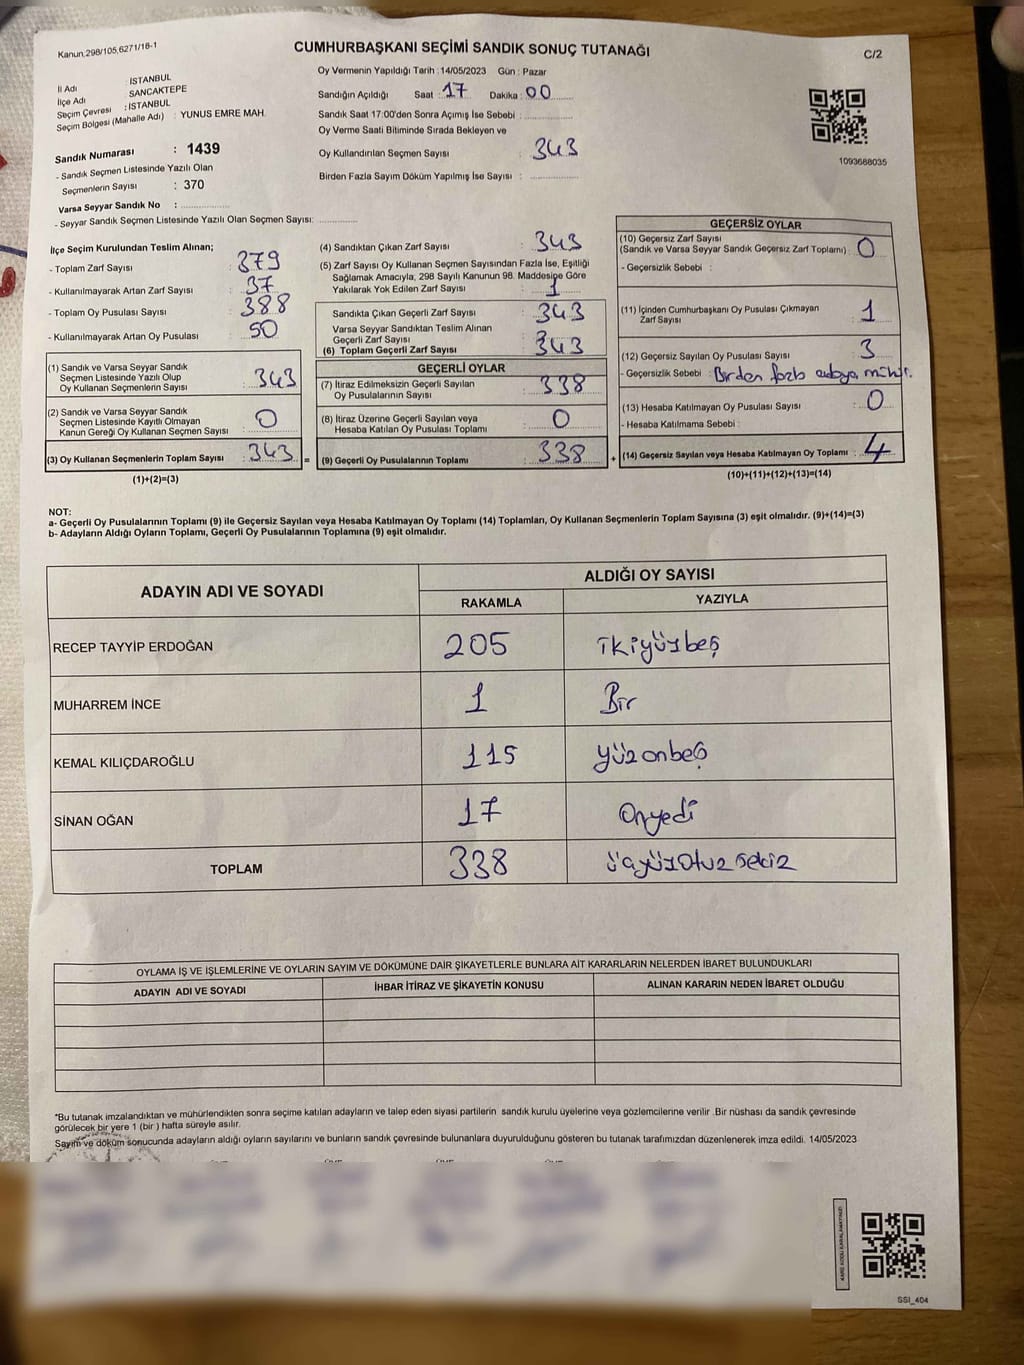 Kanun,298/105,6271/16-1
CUMHURBAŞKANI SEÇİMİ SANDIK SONUÇ TUTANAĞI
C/2
İl Adı : İSTANBUL
İlçe Adı : SANCAKTEPE
Seçim Çevresi : İSTANBUL
Seçim Bölgesi (Mahalle Adı) : YUNUS EMRE MAH.
Sandık Numarası : 1439
- Sandık Seçmen Listesinde Yazılı Olan
Seçmenlerin Sayısı : 370
Varsa Seyyar Sandık No :
- Seyyar Sandık Seçmen Listesinde Yazılı Olan Seçmen Sayısı:
Oy Vermenin Yapıldığı Tarih : 14/05/2023 Gün : Pazar
Sandığın Açıldığı Saat : 17 Dakika : 00
Sandık Saat 17:00'den Sonra Açımış İse Sebebi :
Oy Verme Saati Bitiminde Sırada Bekleyen ve
Oy Kullandırılan Seçmen Sayısı : 343
Birden Fazla Sayım Döküm Yapılmış İse Sayısı :
1093688035
İlçe Seçim Kurulundan Teslim Alınan;
- Toplam Zarf Sayısı : 379
- Kullanılmayarak Artan Zarf Sayısı : 37
- Toplam Oy Pusulası Sayısı : 388
- Kullanılmayarak Artan Oy Pusulası : 50
(1) Sandık ve Varsa Seyyar Sandık
Seçmen Listesinde Yazılı Olup
Oy Kullanan Seçmenlerin Sayısı : 343
(2) Sandık ve Varsa Seyyar Sandık
Seçmen Listesinde Kayıtlı Olmayan
Kanun Gereği Oy Kullanan Seçmen Sayısı : 0
(3) Oy Kullanan Seçmenlerin Toplam Sayısı : 343 =
(1)+(2)=(3)
(4) Sandıktan Çıkan Zarf Sayısı : 343
(5) Zarf Sayısı Oy Kullanan Seçmen Sayısından Fazla İse, Eşitliği
Sağlamak Amacıyla, 298 Sayılı Kanunun 98. Maddesine Göre
Yakılarak Yok Edilen Zarf Sayısı : 1
Sandıkta Çıkan Geçerli Zarf Sayısı : 343
Varsa Seyyar Sandıktan Teslim Alınan
Geçerli Zarf Sayısı :
(6) Toplam Geçerli Zarf Sayısı : 343
GEÇERLİ OYLAR
(7) İtiraz Edilmeksizin Geçerli Sayılan
Oy Pusulalarının Sayısı : 338
(8) İtiraz Üzerine Geçerli Sayılan veya
Hesaba Katılan Oy Pusulası Toplamı : 0
(9) Geçerli Oy Pusulalarının Toplamı : 338 +
GEÇERSİZ OYLAR
(10) Geçersiz Zarf Sayısı
(Sandık ve Varsa Seyyar Sandık Geçersiz Zarf Toplamı) : 0
- Geçersizlik Sebebi :
(11) İçinden Cumhurbaşkanı Oy Pusulası Çıkmayan
Zarf Sayısı : 1
(12) Geçersiz Sayılan Oy Pusulası Sayısı : 3
- Geçersizlik Sebebi : Birden fazla adaya mühür.
(13) Hesaba Katılmayan Oy Pusulası Sayısı : 0
- Hesaba Katılmama Sebebi :
(14) Geçersiz Sayılan veya Hesaba Katılmayan Oy Toplamı : 4
(10)+(11)+(12)+(13)=(14)
NOT:
a- Geçerli Oy Pusulalarının Toplamı (9) ile Geçersiz Sayılan veya Hesaba Katılmayan Oy Toplamı (14) Toplamları, Oy Kullanan Seçmenlerin Toplam Sayısına (3) eşit olmalıdır. (9)+(14)=(3)
b- Adayların Aldığı Oyların Toplamı, Geçerli Oy Pusulalarının Toplamına (9) eşit olmalıdır.
ADAYIN ADI VE SOYADI
ALDIĞI OY SAYISI
RAKAMLA YAZIYLA
RECEP TAYYİP ERDOĞAN 205 ikiyüzbeş
MUHARREM İNCE 1 Bir
KEMAL KILIÇDAROĞLU 115 yüzonbeş
SİNAN OĞAN 17 Onyedi
TOPLAM 338 üçyüzotuzsekiz
OYLAMA İŞ VE İŞLEMLERİNE VE OYLARIN SAYIM VE DÖKÜMÜNE DAİR ŞİKAYETLERLE BUNLARA AİT KARARLARIN NELERDEN İBARET BULUNDUKLARI
ADAYIN ADI VE SOYADI İHBAR İTİRAZ VE ŞİKAYETİN KONUSU ALINAN KARARIN NEDEN İBARET OLDUĞU
*Bu tutanak imzalandıktan ve mühürlendikten sonra seçime katılan adayların ve talep eden siyasi partilerin sandık kurulu üyelerine veya gözlemcilerine verilir .Bir nüshası da sandık çevresinde
görülecek bir yere 1 (bir ) hafta süreyle asılır.
Sayım ve döküm sonucunda adayların aldığı oyların sayılarını ve bunların sandık çevresinde bulunanlara duyurulduğunu gösteren bu tutanak tarafımızdan düzenlenerek imza edildi. 14/05/2023
KARE KODU KARALAMAYINIZ!
SSI_404